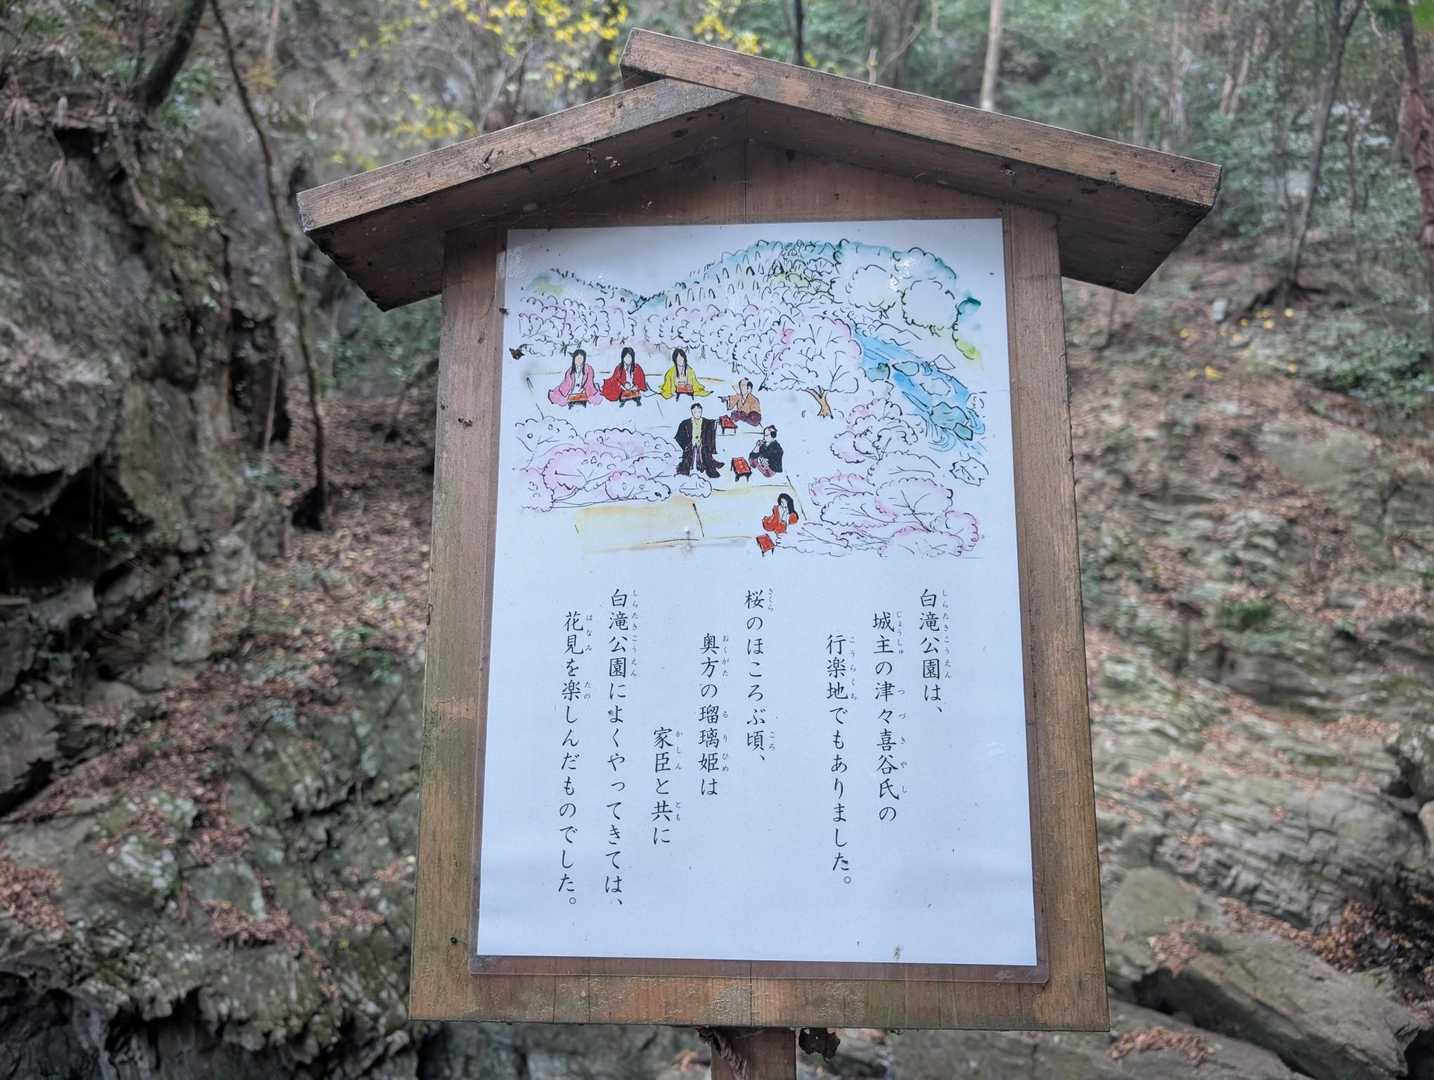 白滝公園は、
城主の津々喜谷氏の
行楽地でもありました。
桜のほころぶ頃、
奥方の瑠璃姫は
家臣と共に
白滝公園によくやってきては、
花見を楽しんだものでした。